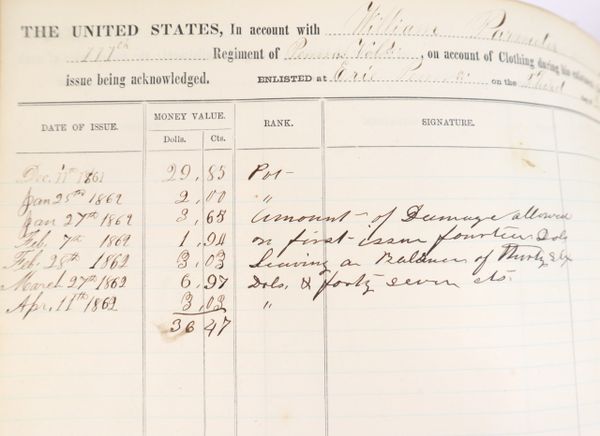 THE UNITED STATES, In account with William Parmeter
111th Regiment of Penna Vols, on account of Clothing during his
issue being acknowledged. ENLISTED at Erie Penna on the Third
DATE OF ISSUE. MONEY VALUE. RANK. SIGNATURE.
Dolls. Cts.
Dec. 11th 1861 29,85 Pvt
Jan 25th 1862 2,00 "
Jan 27th 1862 3,65 Amount of Damage allowed
Feb. 7th 1862 1,94 on first issue fourteen Dols
Feb. 28th 1862 3,03 Leaving an Balance of thirty six
March 27th 1862 6,97 Dols. & forty seven cts.
Apr. 11th 1862 3,03 "
36 47